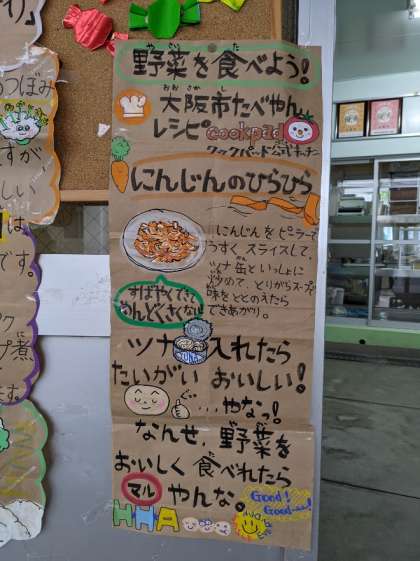 野菜を食べよう!
大阪市たべやん
レシピ cookpad
クックパッド公式キッチン
にんじんのひらひら
にんじんをピーラーで
うすくスライスして、
ツナ缶といっしょに
炒めて、とりがらスープで
味をととのえたら
できあがり。
すばやくできて
めんどくさくない
ツナ TUNA 入れたら
たいがい おいしい!
…やなっ!
なんせ、野菜を
おいしく食べれたら
マル やんな。
Good! Good~!